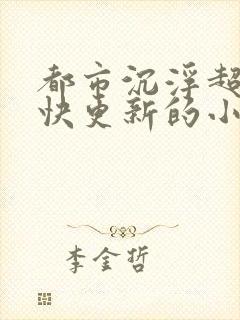 都市沉浮超
快更新的小
李金哲